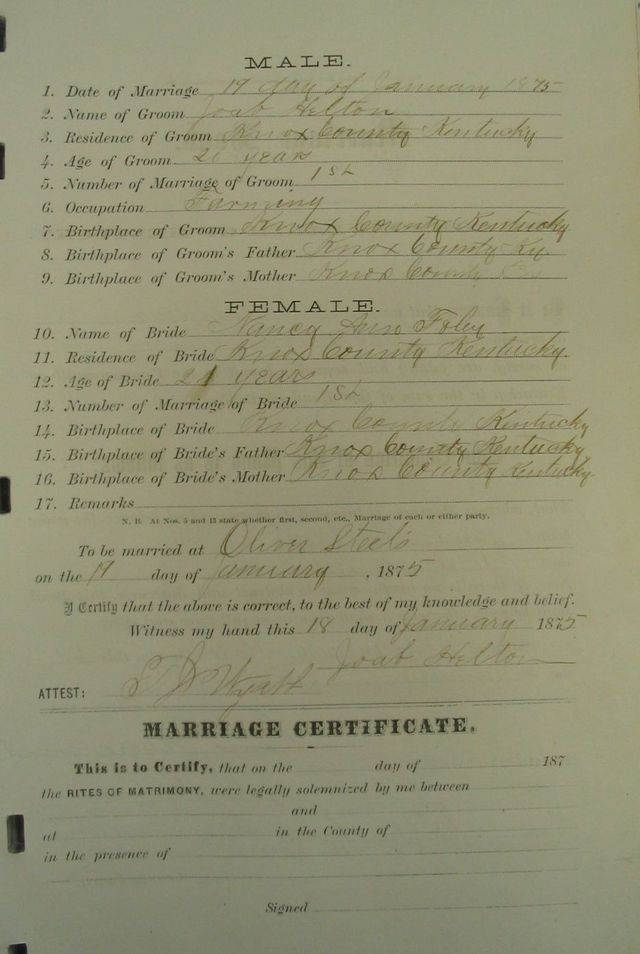 MALE.
1. Date of Marriage 19 day of January 1875
2. Name of Groom Joab Helton
3. Residence of Groom Knox County Kentucky
4. Age of Groom years
5. Number of Marriage of Groom 1st
6. Occupation Farming
7. Birthplace of Groom Knox County Kentucky
8. Birthplace of Groom's Father Knox County Ky.
9. Birthplace of Groom's Mother Knox County
FEMALE.
10. Name of Bride Nancy Ann Foley
11. Residence of Bride Knox County Kentucky.
12. Age of Bride 21 years
13. Number of Marriage of Bride 1st
14. Birthplace of Bride Knox County Kentucky
15. Birthplace of Bride's Father Knox County Kentucky
16. Birthplace of Bride's Mother Knox County Kentucky
17. Remarks
N. B. At Nos. 5 and 13 state whether first, second, etc., Marriage of each or either party.
To be married at Oliver Steel's
on the day of January, 1875
I Certify that the above is correct, to the best of my knowledge and belief.
Witness my hand this 18 day of January 1875
Joab Helton
ATTEST: Wyatt
MARRIAGE CERTIFICATE.
This is to Certify, that on the day of 187
the RITES OF MATRIMONY, were legally solemnized by me between
and
at in the County of
in the presence of
Signed